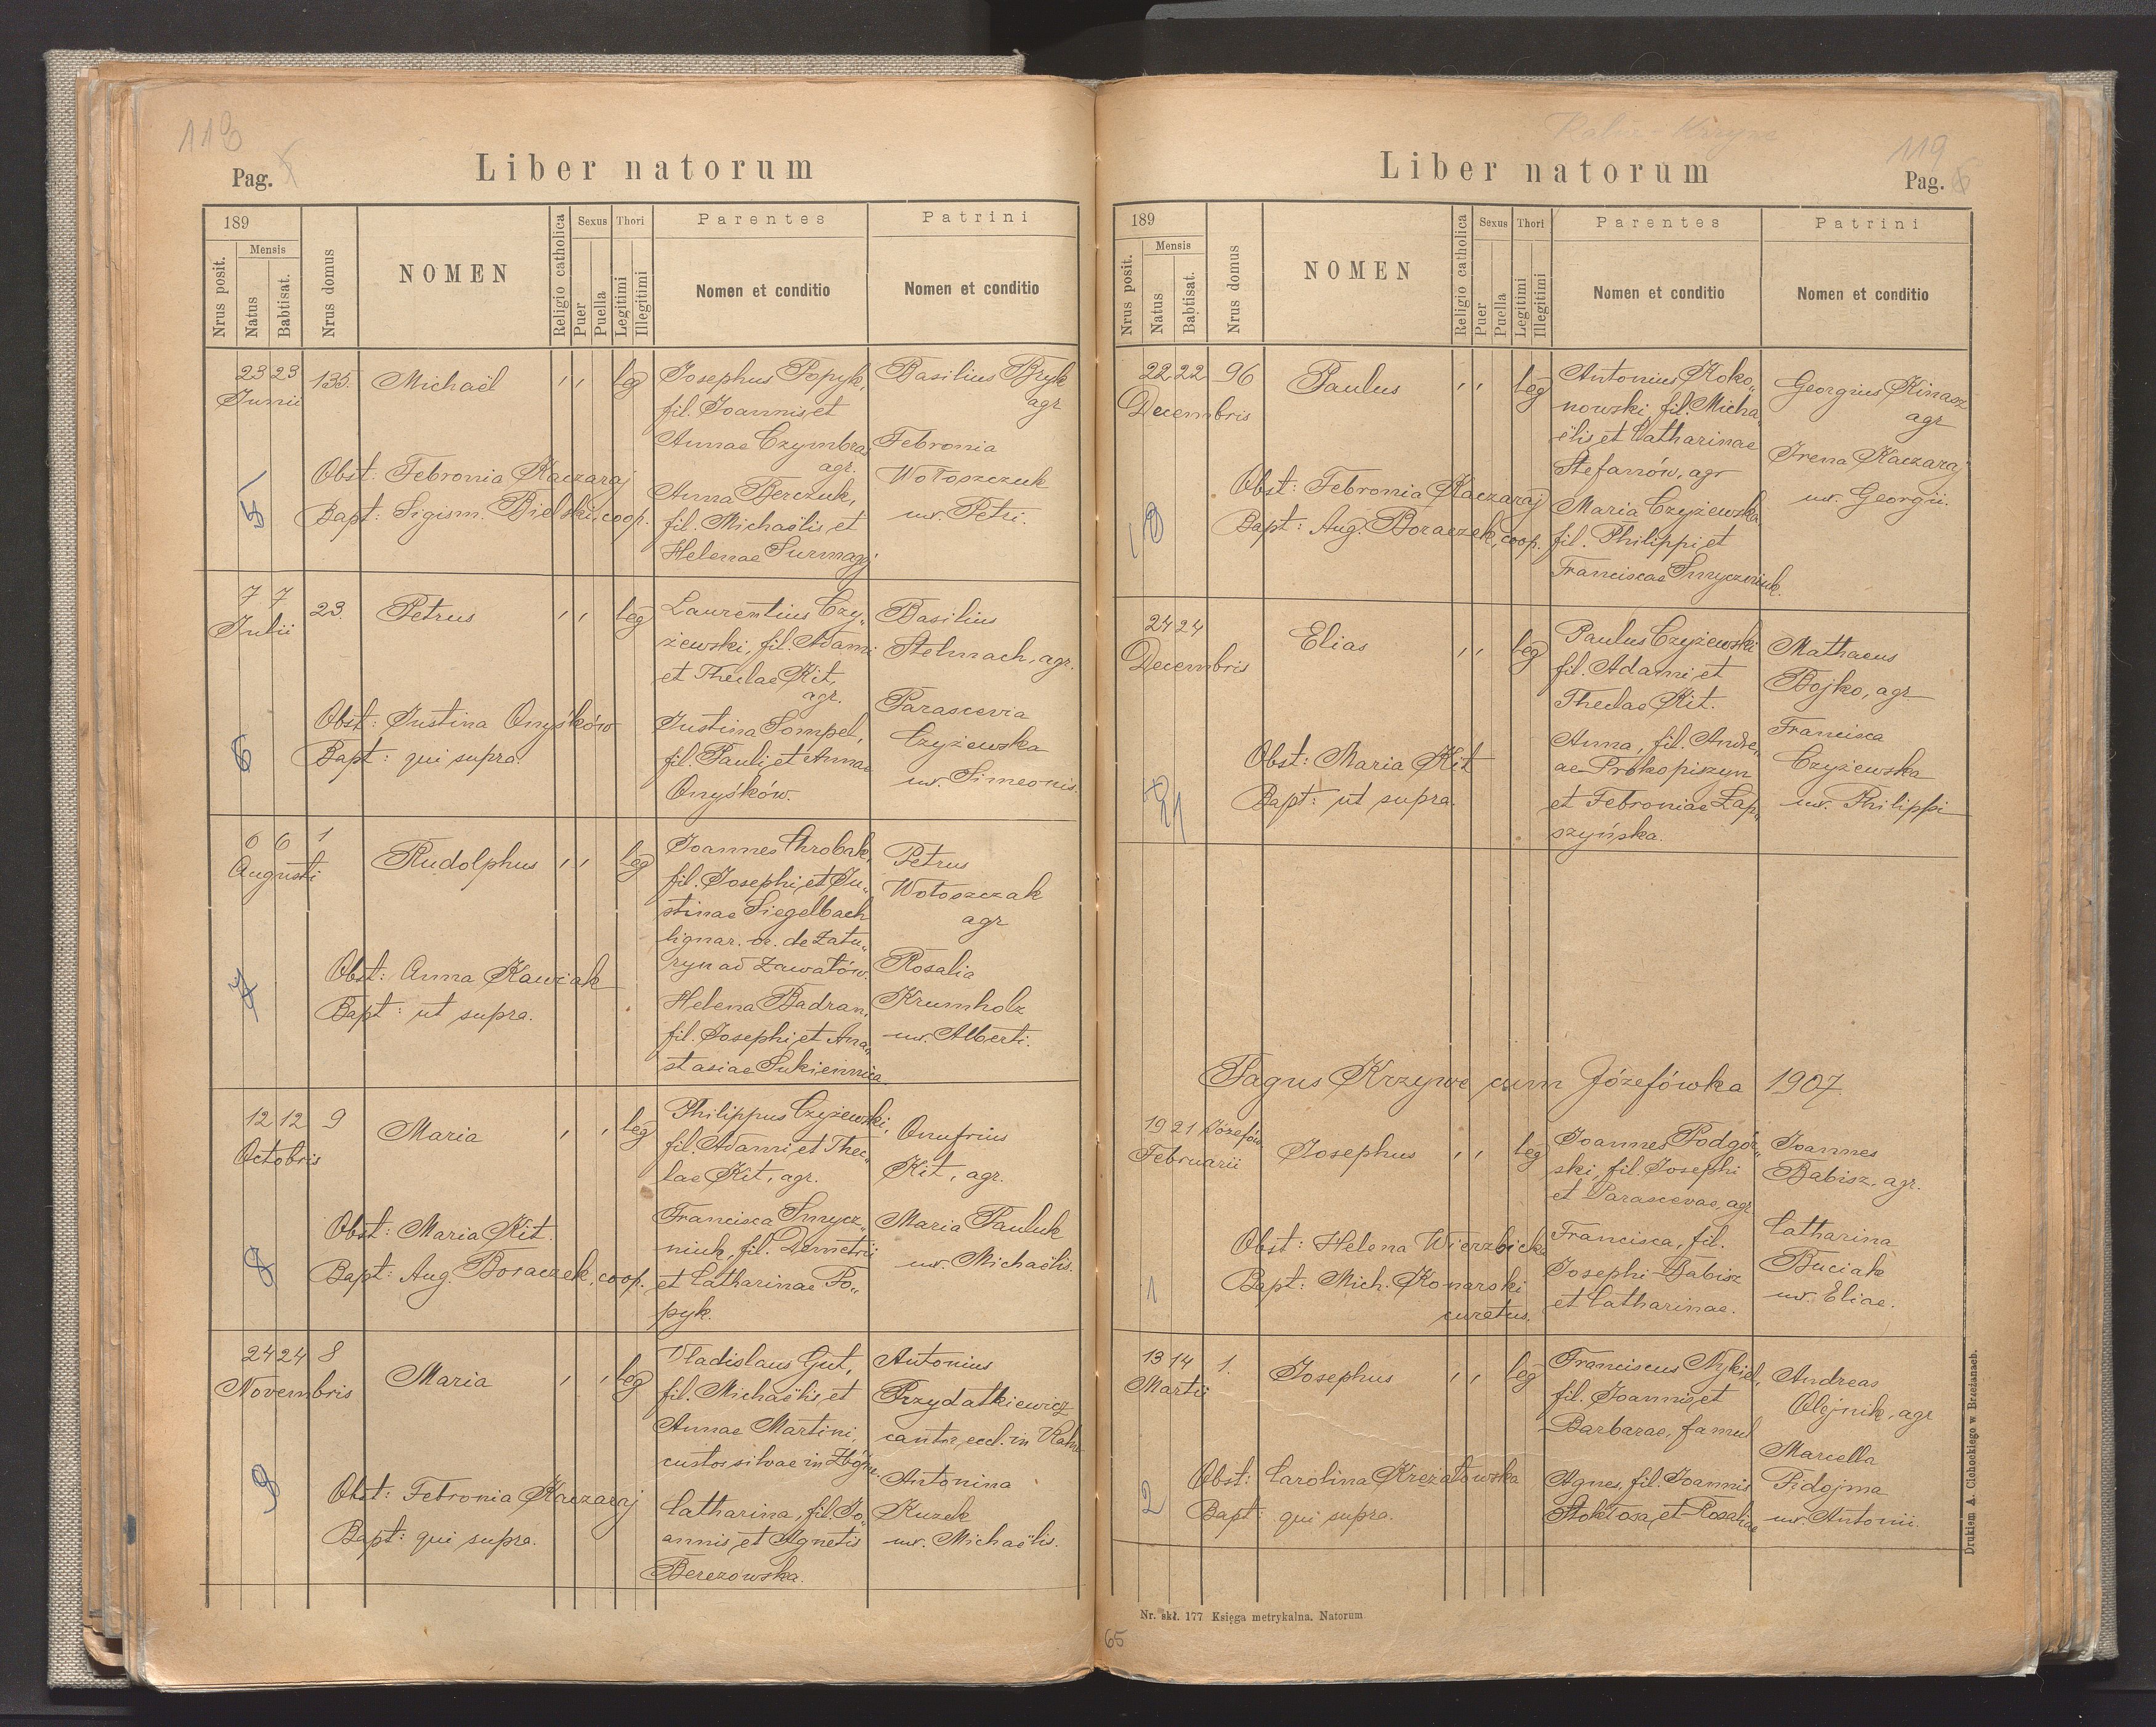 118
Pag.
Liber natorum
189
Nrus posit.
Mensis
Natus
Babtisat.
Nrus domus
NOMEN
Religio catholica
Sexus
Puer
Puella
Thori
Legitimi
Illegitimi
Parentes
Nomen et conditio
Patrini
Nomen et conditio
5
23 23
Junii
135.
Michaël
Obst: Febronia Kaczaraj
Bapt: Sigism. Bielski, coop.
leg
Josephus Popyk,
fil. Joannis et
Annae Czymbra
agr.
Anna Berczuk,
fil. Michaëlis et
Helenae Surmaj
Basilius Bryk
agr
Febronia
Wołoszczuk
ux. Petri.
6
7 7
Julii
23.
Petrus
Obst: Justina Onyśków
Bapt: qui supra.
leg
Laurentius Czy„
żewski, fil. Adami
et Theclae Kit,
agr.
Justina Sompel,
fil. Pauli et Annae
Onyśków.
Basilius
Stelmach, agr.
Parascevia
Czyżewska
ux. Simeonis.
7
6 6
Augusti
1
Rudolphus
Obst: Anna Kawiak
Bapt: ut supra.
leg
Joannes Chrobak,
fil. Josephi et Ju„
stinae Siegelbach
lignar. or. de Zatu„
ryn ad Zawałów.
Helena Badran,
fil. Josephi et Ana„
stasiae Sukiennica.
Petrus
Wołoszczak
agr
Rosalia
Krumholz
ux. Alberti.
8
12 12
Octobris
9
Maria
Obst: Maria Kit.
Bapt: Aug. Boraczek, coop.
leg
Philippus Czyżewski,
fil. Adami et Thec„
lae Kit, agr.
Francisca Smycz„
niuk, fil. Demetrii
et Catharinae Po„
pyk.
Onufrius
Kit, agr.
Maria Pauluk
ux. Michaëlis.
9
24 24
Novembris
8
Maria
Obst: Febronia Kaczaraj
Bapt: qui supra.
leg
Vladislaus Gut,
fil. Michaëlis et
Annae Martini,
custos silvae in
Catharina, fil. Jo„
annis et Agnetis
Berezowska.
Antonius
Przydatkiewicz
cantor eccl. in
Antonina
Kuzek
ux. Michaëlis.
119
Pag.
Liber natorum
189
Nrus posit.
Mensis
Natus
Babtisat.
Nrus domus
NOMEN
Religio catholica
Sexus
Puer
Puella
Thori
Legitimi
Illegitimi
Parentes
Nomen et conditio
Patrini
Nomen et conditio
22 22
Decembris
96
Paulus
Obst: Febronia Kaczaraj
Bapt: Aug. Boraczek, coop.
leg
Antonius Koko„
nowski, fil. Micha„
ëlis et Catharinae
Stefanów, agr
Maria Czyżewska
fil. Philippi et
Franciscae Smyczniuk.
Georgius Kinasz
agr
Irena Kaczaraj
ux. Georgii.
24 24
Decembris
Elias
Obst: Maria Kit
Bapt: ut supra.
leg
Paulus Czyżewski
fil. Adami et
Theclae Kit.
Anna, fil. Andre„
ae Prokopiszyn
et Febroniae Łap„
szyńska.
Mathaeus
Bojko, agr
Francisca
Czyżewska
ux. Philippi
Pagus Krzywe cum Józefówka 1907
1
19 21
Februarii
Józefów
Josephus
Obst: Helena Wierzbicka
Bapt: Mich. Konarski
curatus.
leg
Joannes Podgór„
ski, fil. Josephi
et Parascevae, agr
Francisca, fil.
Josephi Babisz
et Catharinae.
Joannes
Babisz, agr.
Catharina
Buciak
ux. Eliae.
2
13 14
Martii
1.
Josephus
Obst: Carolina Krezałowska
Bapt: qui supra.
leg
Franciscus Nykiel,
fil. Joannis et
Barbarae, famul
Agnes, fil. Joannis
Stokłosa, et Rosaliae
Andreas
Olejnik, agr
Marcella
Fidojma
ux. Antonii.
Nr. skł. 177 Księga metrykalna. Natorum
Drukiem A. Cichockiego w Brzeżanach.
65